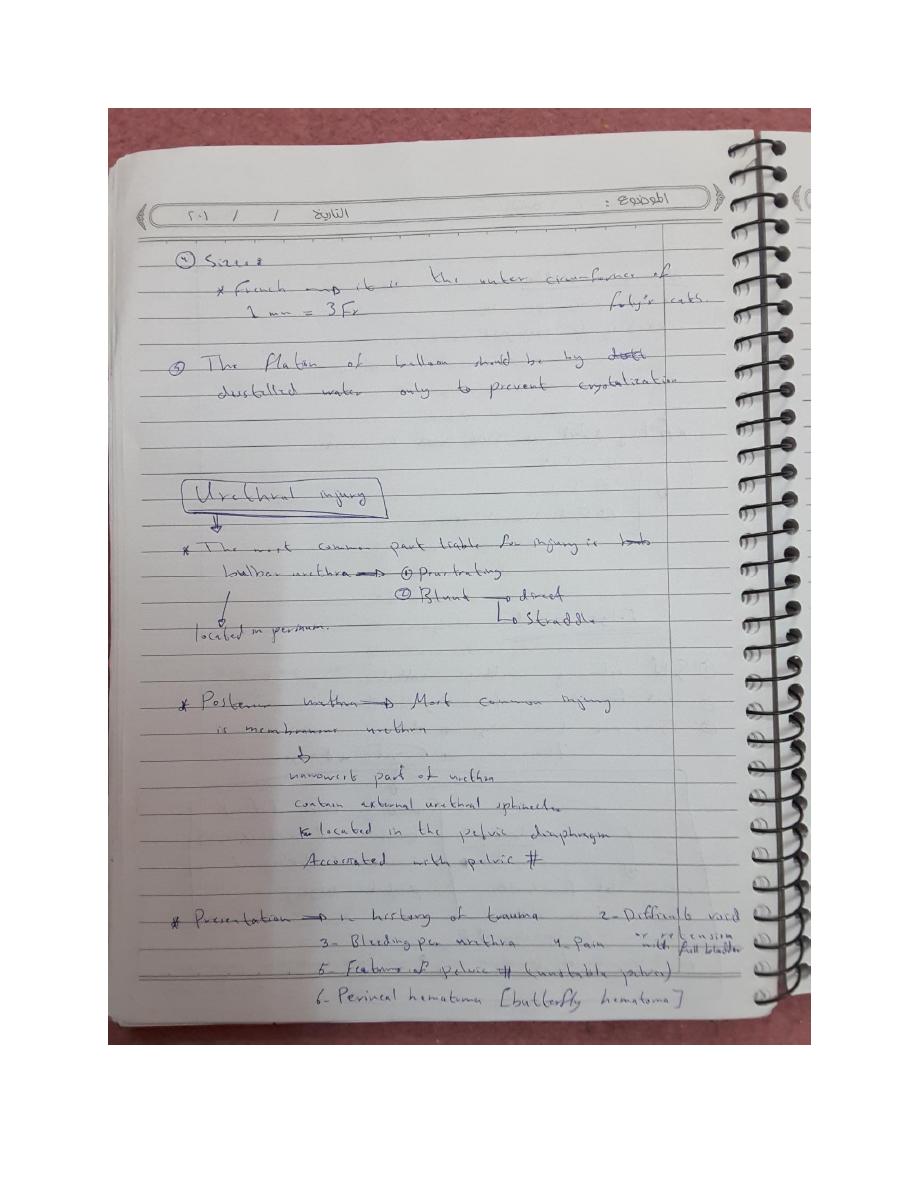 الموضوع :
التاريخ / / ٢٠١
④ Sizes
* French → it is the outer circumfernce of
foly's cats.
1 mm = 3 Fr
⑤ The flation of balloon should be by
dustelled water only to prevent crystalization
Urethral injury
* The most common part liable for injury is
bulbar urethra → ① Penetrating
② Blunt → direct
↳ Straddle
located in perinum.
* Posterior urethra → Most common injury
is membranous urethra
narrowest part of urethra
contain external urethral sphincter
located in the pelvic diaphragm
Accociated with pelvic #
* Presentation → history of trauma 2- Difficult void
or retension
3- Bleeding per urethra 4- Pain with full bladder
5- Features of pelvic # (unstable pelvis)
6- Perineal hematoma [butterfly hematoma]